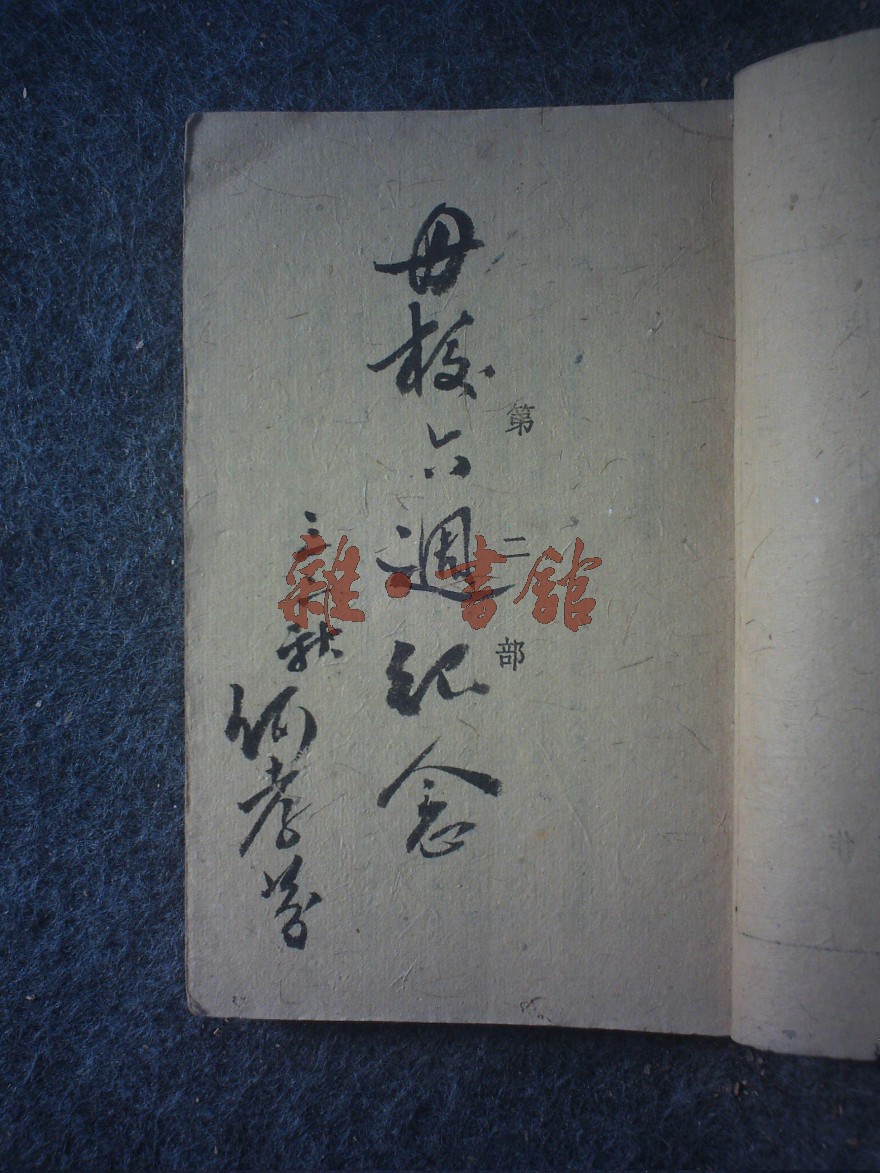 第二部
母校六週紀念
三三秋
何孝
雜·書館